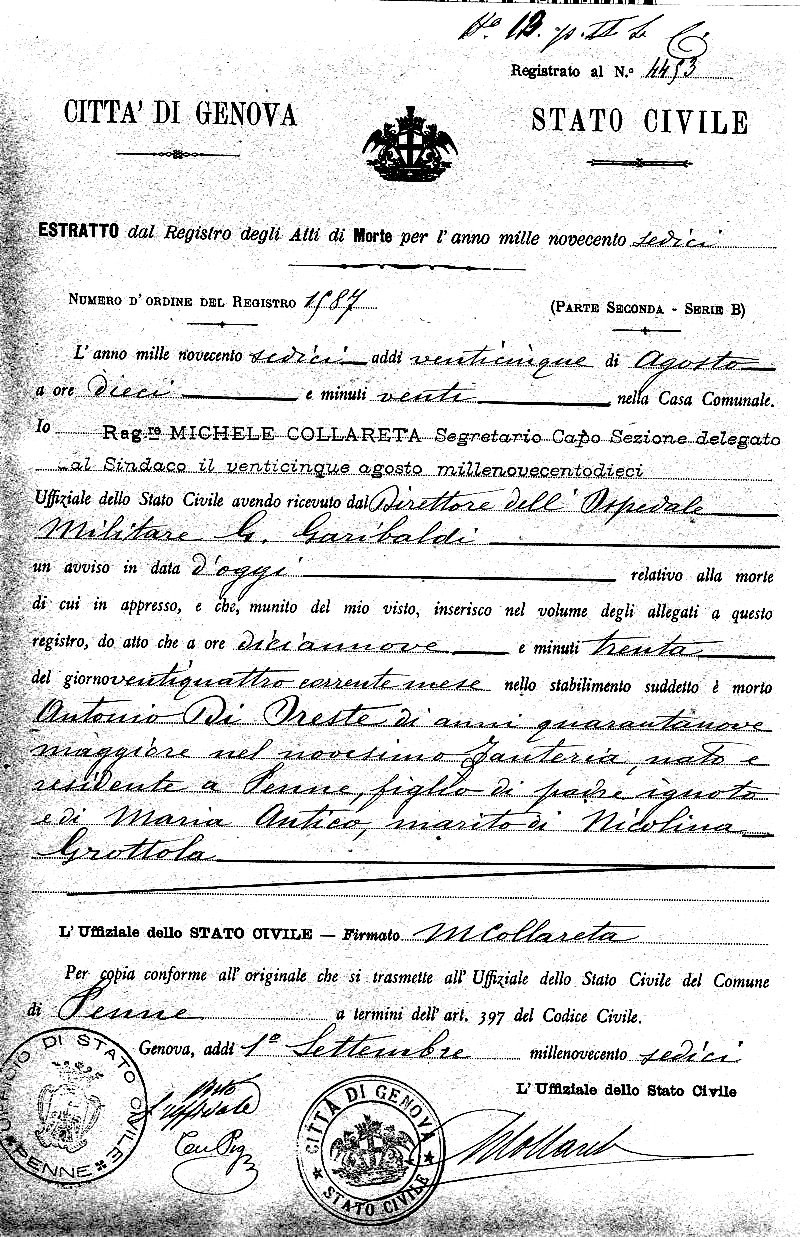 N.º 12. p. II s. C
Registrato al N.º 4453
CITTA' DI GENOVA
STATO CIVILE
ESTRATTO dal Registro degli Atti di Morte per l'anno mille novecento sedici
NUMERO D'ORDINE DEL REGISTRO 1587
(PARTE SECONDA - SERIE B)
L'anno mille novecento sedici addì venticinque di Agosto
a ore dieci e minuti venti nella Casa Comunale.
Io Rag.re MICHELE COLLARETA Segretario Capo Sezione delegato
al Sindaco il venticinque agosto millenovecentodieci
Uffiziale dello Stato Civile avendo ricevuto dal Direttore dell' Ospedale
Militare G. Garibaldi
un avviso in data d'oggi relativo alla morte
di cui in appresso, e che, munito del mio visto, inserisco nel volume degli allegati a questo
registro, do atto che a ore diciannove e minuti trenta
del giorno ventiquattro corrente mese nello stabilimento suddetto è morto
Antonio Di Oreste di anni quarantanove
maggiore nel novesimo Fanteria, nato e
residente a Penne, figlio di padre ignoto
e di Maria Antico, marito di Nicolina
Grottola
L'Uffiziale dello STATO CIVILE — Firmato MCollareta
Per copia conforme all'originale che si trasmette all'Uffiziale dello Stato Civile del Comune
di Penne a termini dell'art. 397 del Codice Civile.
Genova, addì 1º Settembre millenovecento sedici
L'Uffiziale dello Stato Civile
UFFICIO DI STATO CIVILE
PENNE
CITTÀ DI GENOVA
STATO CIVILE
MCollareta